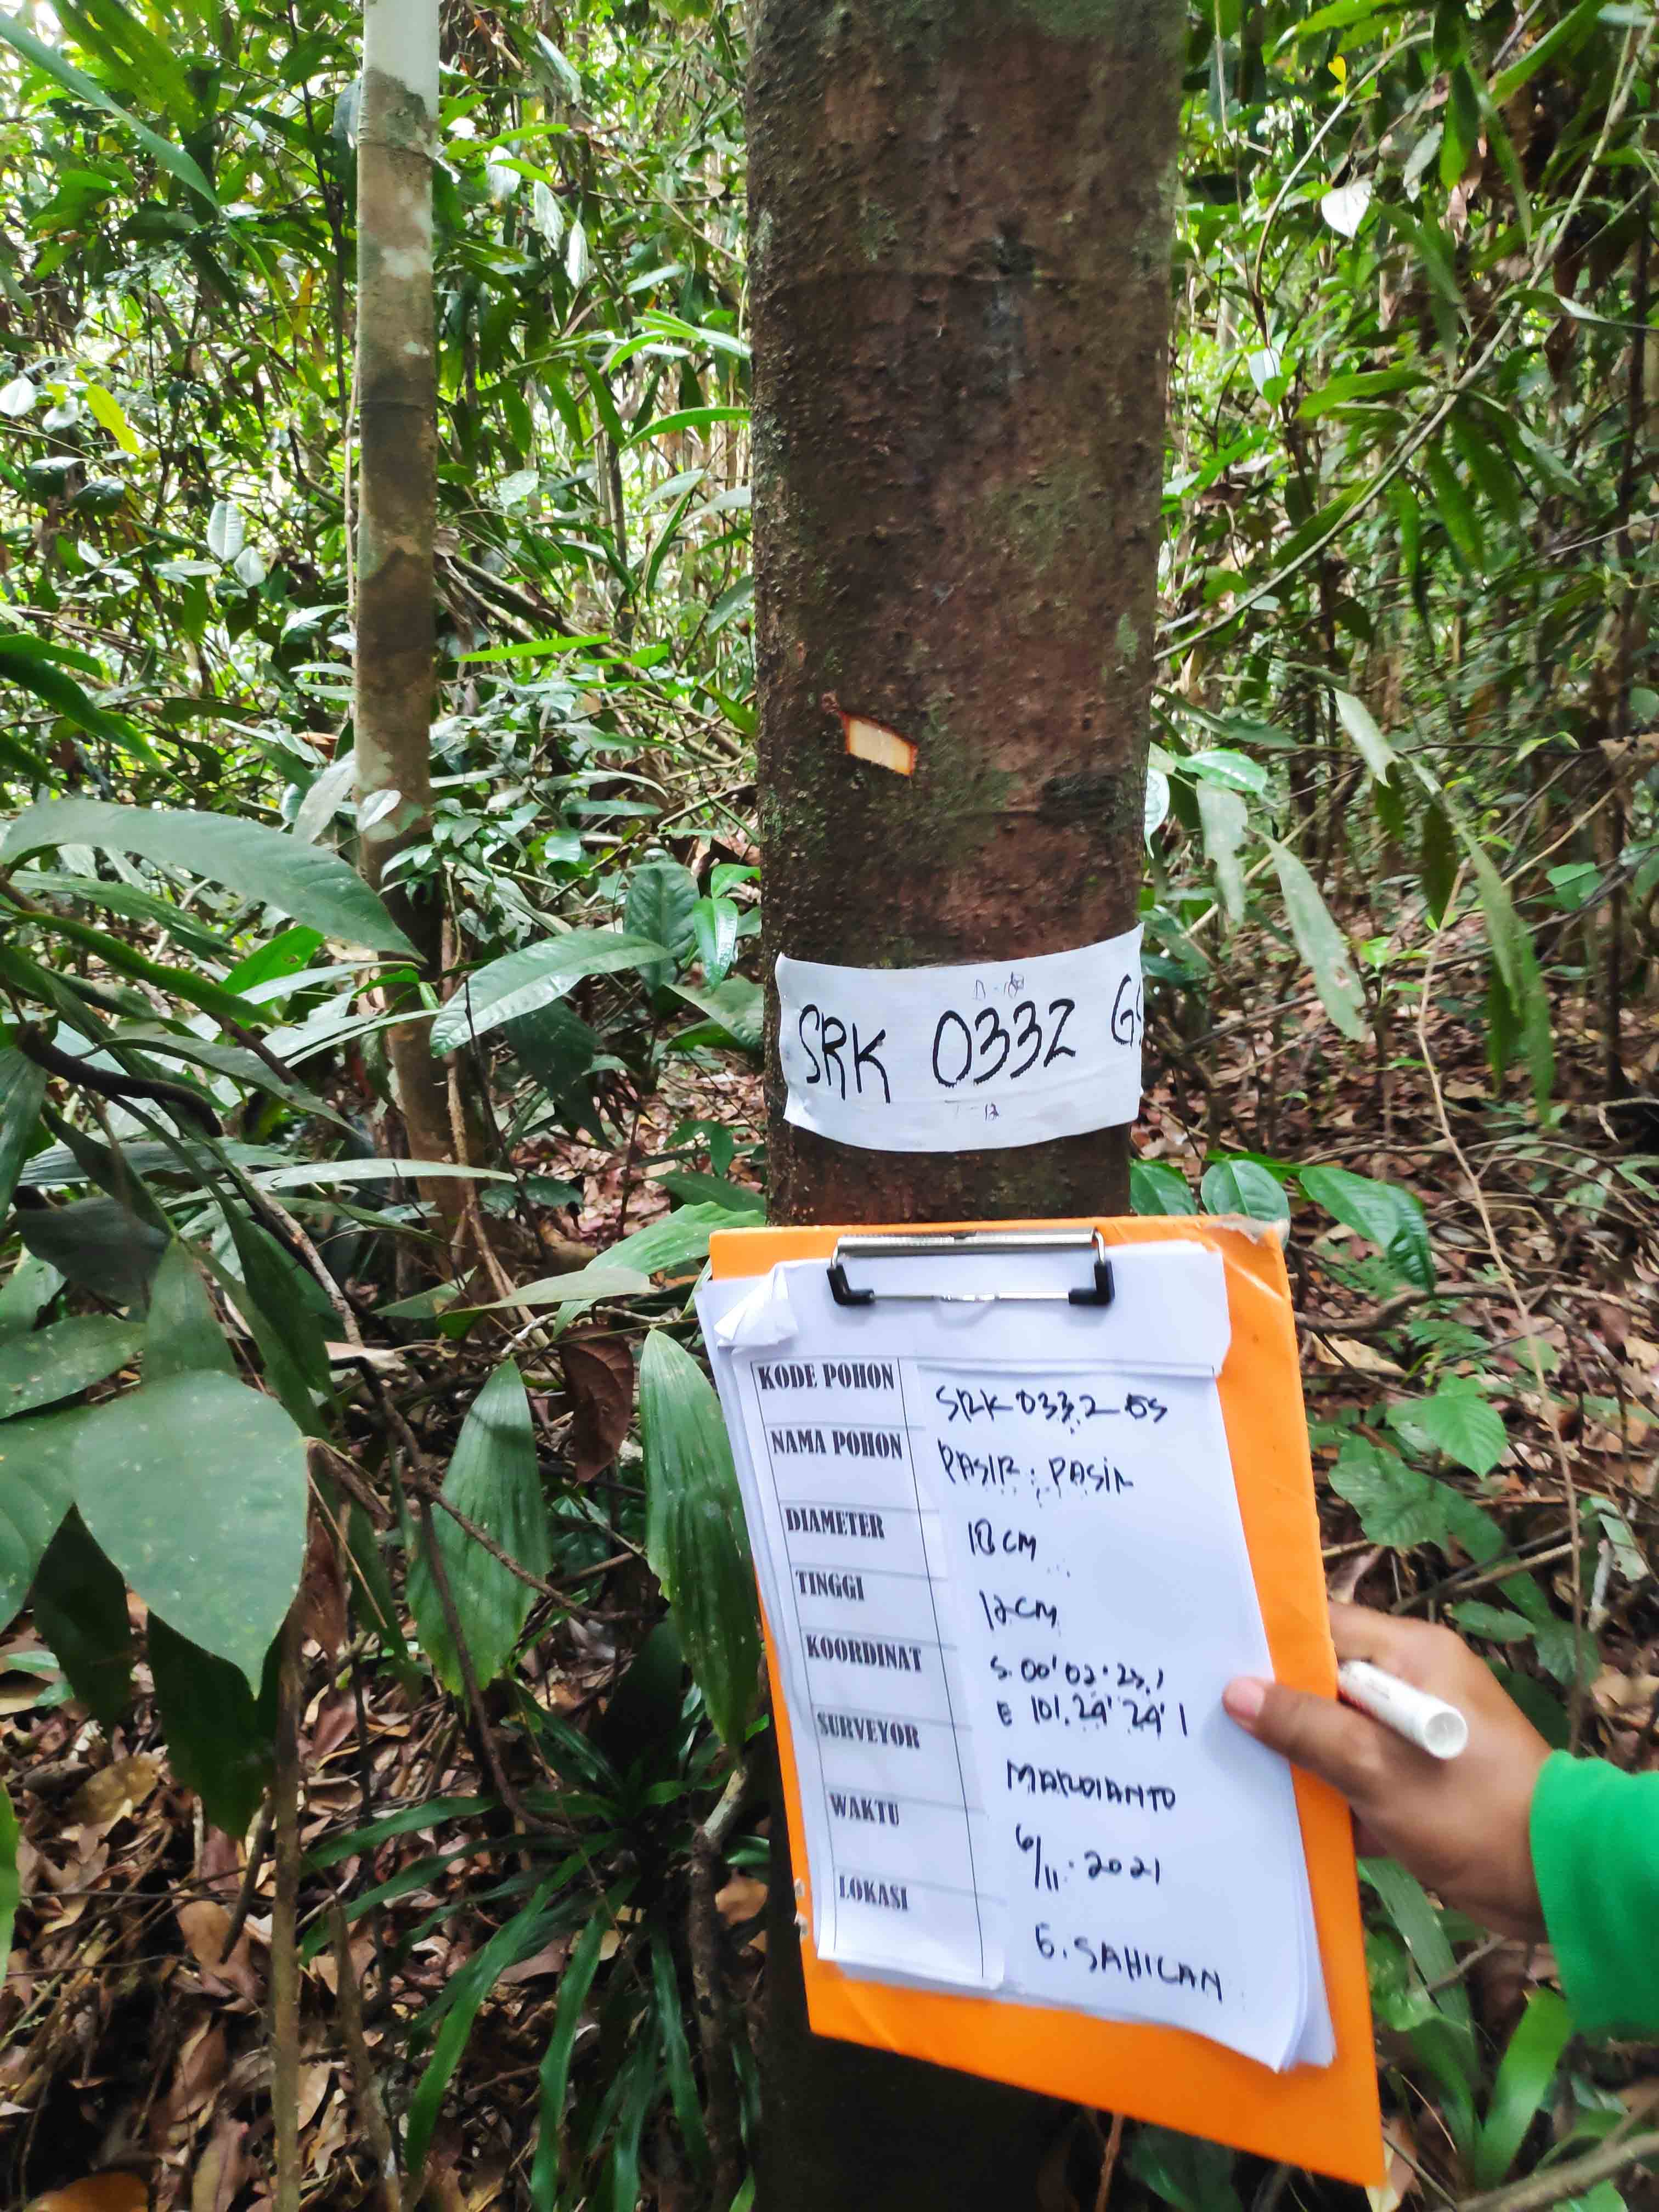 D-18
SRK 0332 GS
T-12
KODE POHON SRK 0332 GS
NAMA POHON PASIR : PASIR
DIAMETER 18 CM
TINGGI 12 CM
KOORDINAT S. 00' 02' 23, 1
E 101. 24' 24' 1
SURVEYOR MARDIANTO
WAKTU 6/11. 2021
LOKASI G. SAHILAN